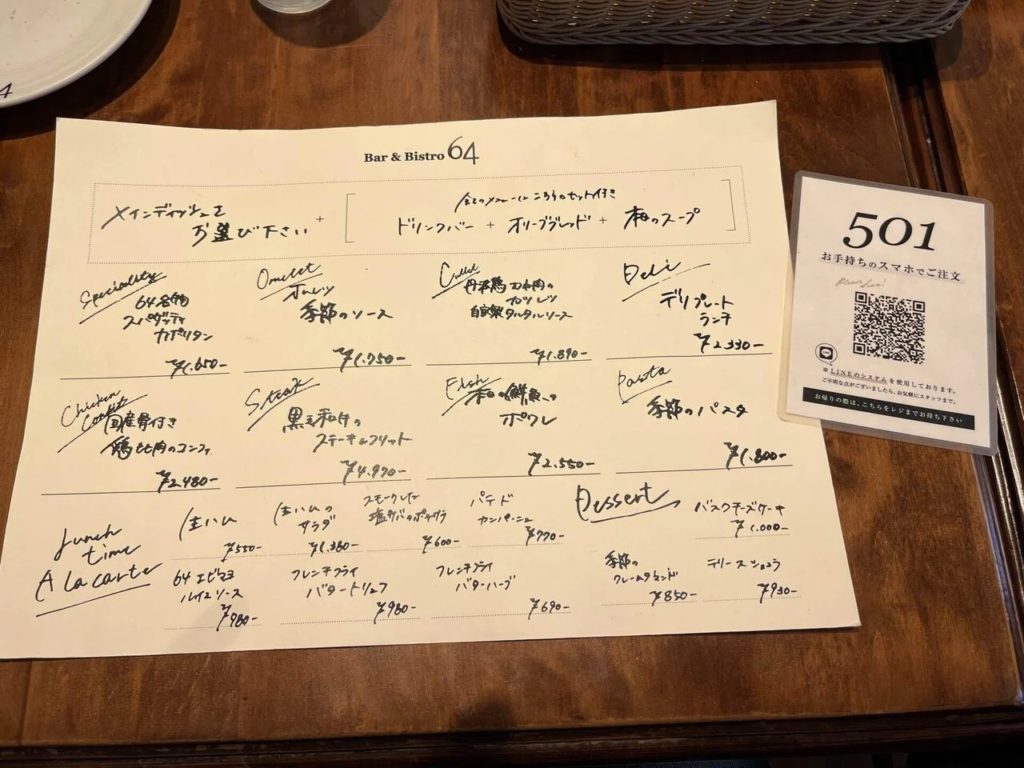 Bar & Bistro 64
メインディッシュを
お選び下さい
+
全てのメニューにこちらのセット付き
ドリンクバー + オリーブブレッド + 本日のスープ
Speciality
64名物
スパゲッティ
ナポリタン
¥1.650-
Omelet
オムレツ
季節のソース
¥1.750-
Cutlet
丹波鶏むね肉の
カツレツ
自家製タルタルソース
¥1.890-
Deli
デリプレート
ランチ
¥2.330-
Chicken
Confit
国産骨付き
鶏もも肉のコンフィ
¥2.480-
Steak
黒毛和牛の
ステーキ&フリット
¥4.970-
Fish
本日の鮮魚の
ポワレ
¥2.550-
Pasta
季節のパスタ
¥1.800-
Lunch
time
A la carte
生ハム
¥550-
生ハムの
サラダ
¥1.380-
スモークした
塩サバのポテサラ
¥600-
パテド
カンパーニュ
¥770-
64 エビマヨ
ルイユソース
¥980-
フレンチフライ
バタートリュフ
¥980-
フレンチフライ
バターハーブ
¥690-
Dessert
バスクチーズケーキ
¥1.000-
季節の
クレームダモンド
¥850-
テリーヌショコラ
¥930-
501
お手持ちのスマホでご注文
※ LINEのシステムを使用しております。
ご不明な点がございましたら、お気軽にスタッフまで。
お帰りの際は、こちらをレジまでお持ち下さい